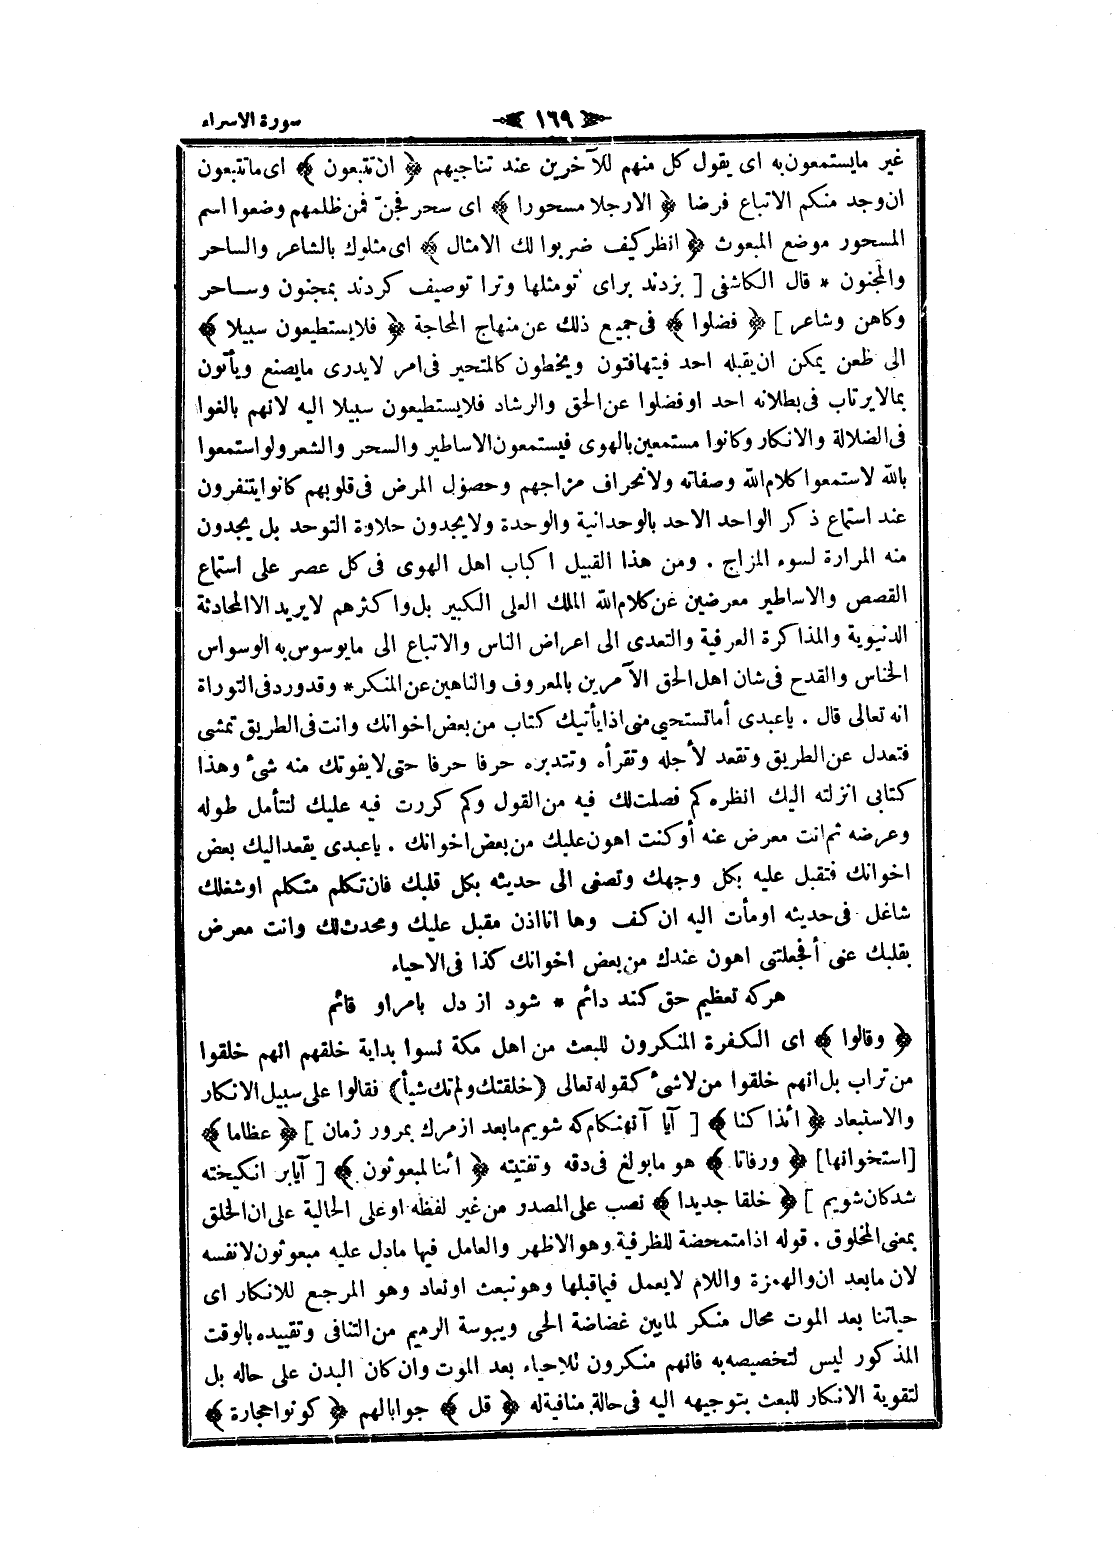 سورة الاسراء ١٦٩
غير مايستمعون به اى يقول كل منهم للآخرين عند تناجيهم ﴿ ان تتبعون ﴾ اى ماتتبعون
ان وجد منكم الاتباع فرضا ﴿ الارجلا مسحورا ﴾ اى سحر فجنّ فمن ظلمهم وضعوا اسم
المسحور موضع المبعوث ﴿ انظر كيف ضربوا لك الامثال ﴾ اى مثلوك بالشاعر والساحر
والمجنون * قال الكاشفى [ بزدند براى تومثلها وترا توصيف كردند بمجنون وساحر
وكاهن وشاعر ] ﴿ فضلوا ﴾ فى جميع ذلك عن منهاج المحاجة ﴿ فلايستطيعون سبيلا ﴾
الى طعن يمكن ان يقبله احد فيتهافتون ويخطون كالمتحير فى امر لايدرى مايصنع ويأتون
بمالايرتاب فى بطلانه احد اوفضلوا عن الحق والرشاد فلايستطيعون سبيلا اليه لانهم بالغوا
فى الضلالة والانكار وكانوا مستمعين بالهوى فيستمعون الاساطير والسحر والشعر ولواستمعوا
بالله لاستمعوا كلام الله وصفاته ولانحراف مزاجهم وحصول المرض فى قلوبهم كانوا يتنفرون
عند استماع ذكر الواحد الاحد بالوحدانية والوحدة ولايجدون حلاوة التوحد بل يجدون
منه المرارة لسوء المزاج . ومن هذا القبيل اكباب اهل الهوى فى كل عصر على استماع
القصص والاساطير معرضين عن كلام الله الملك العلى الكبير بل واكثرهم لايريد الاالمحادثة
الدنيوية والمذاكرة العرفية والتعدى الى اعراض الناس والاتباع الى مايوسوس به الوسواس
الخناس والقدح فى شان اهل الحق الآمرين بالمعروف والناهين عن المنكر * وقدورد فى التوراة
انه تعالى قال . ياعبدى أماتستحيى منى اذا يأتيك كتاب من بعض اخوانك وانت فى الطريق تمشى
فتعدل عن الطريق وتقعد لأجله وتقرأه وتتدبره حرفا حرفا حتى لايفوتك منه شىء وهذا
كتابى انزلته اليك انظره كم فصلت لك فيه من القول وكم كررت فيه عليك لتتأمل طوله
وعرضه ثم انت معرض عنه أوكنت اهون عليك من بعض اخوانك . ياعبدى يقعد اليك بعض
اخوانك فتقبل عليه بكل وجهك وتصغى الى حديثه بكل قلبك فان تكلم متكلم اوشغلك
شاغل فى حديثه اومأت اليه ان كف وها انااذن مقبل عليك ومحدث لك وانت معرض
بقلبك عنى أفجعلتنى اهون عندك من بعض اخوانك كذا فى الاحياء
هركه تعظيم حق كند دائم * شود از دل بامر او قائم
﴿ وقالوا ﴾ اى الكفرة المنكرون للبعث من اهل مكة نسوا بداية خلقهم انهم خلقوا
من تراب بل انهم خلقوا من لاشىء كقوله تعالى (خلقتك ولم تك شيأ) فقالوا على سبيل الانكار
والاستبعاد ﴿ ائذا كنا ﴾ [ آيا آنهنكام كه شويم مابعد از مرك بمرور زمان ] ﴿ عظاما ﴾
[استخوانها] ﴿ ورفاتا ﴾ هو مابولغ فى دقه وتفتيته ﴿ ائنا لمبعوثون ﴾ [ آيابر انكيخته
شدكان شويم ] ﴿ خلقا جديدا ﴾ نصب على المصدر من غير لفظه اوعلى الحالية على ان الخلق
بمعنى المخلوق . قوله اذا متمحضة للظرفية وهو الاظهر والعامل فيها مادل عليه مبعوثون لانفسه
لان مابعد ان والهمزة واللام لايعمل فيماقبلها وهو نبعث اونعاد وهو المرجع للانكار اى
حياتنا بعد الموت محال منكر لمابين غضاضة الحى ويبوسة الرميم من التنافى وتقييده بالوقت
المذكور ليس لتخصيصه به فانهم منكرون للاحياء بعد الموت وان كان البدن على حاله بل
لتقوية الانكار للبعث بتوجيهه اليه فى حالة منافية له ﴿ قل ﴾ جوابا لهم ﴿ كونوا حجارة ﴾